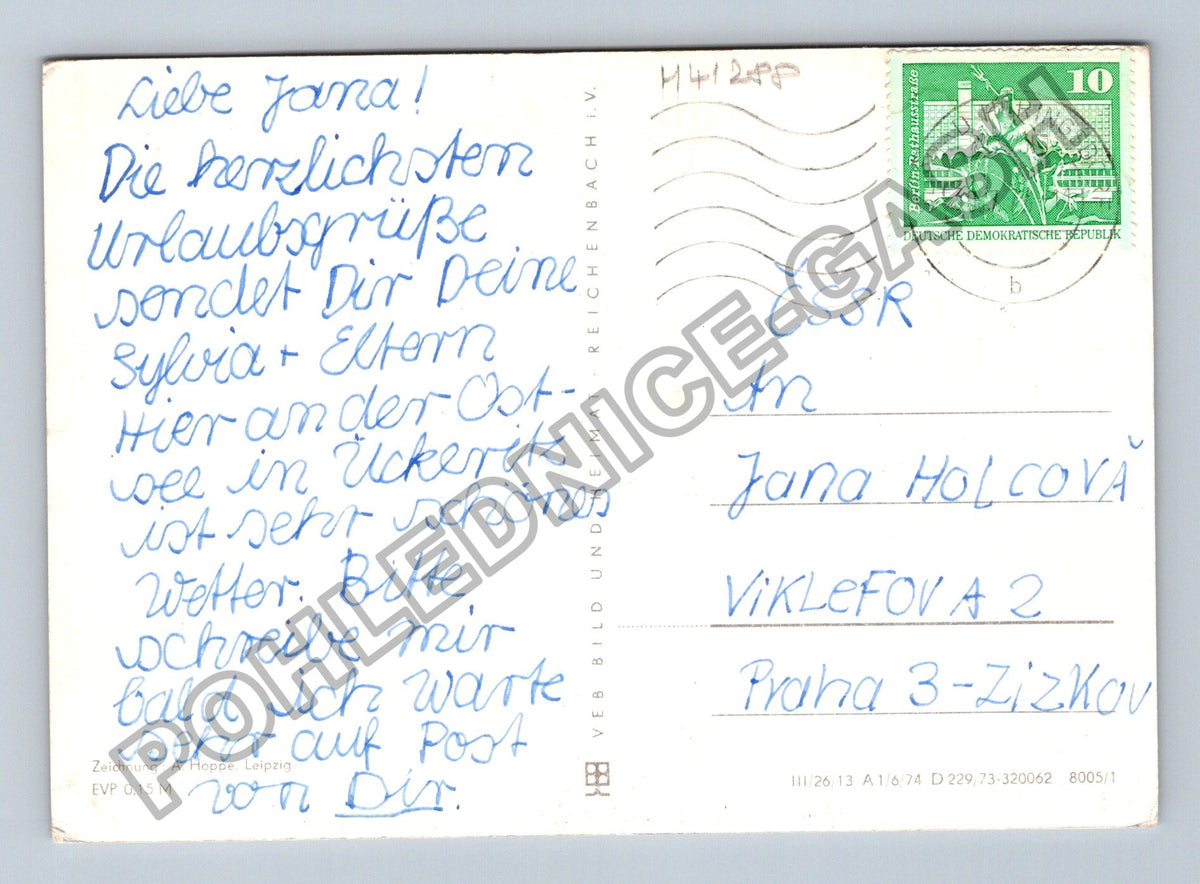 Liebe Jana!
Die herzlichsten
Urlaubsgrüße
sendet Dir Deine
Sylvia + Eltern
Hier an der Ost-
see in Ückeritz
ist sehr schönes
Wetter. Bitte
schreibe mir
bald ich warte
sehr auf Post
von Dir.
Zeichnung: A. Hoppe, Leipzig
EVP 0,15 M
VEB BILD UND HEIMAT REICHENBACH i. V.
H41288
10
Berlin-Rathausstraße
DEUTSCHE DEMOKRATISCHE REPUBLIK
b
ČSSR
An
Jana HOLCOVǍ
ViKLeFOVA 2
Praha 3-ZiZKOV
III/26/13 A 1/6/74 D 229/73-320062 8005/1
POHLEDNICE-GABCH